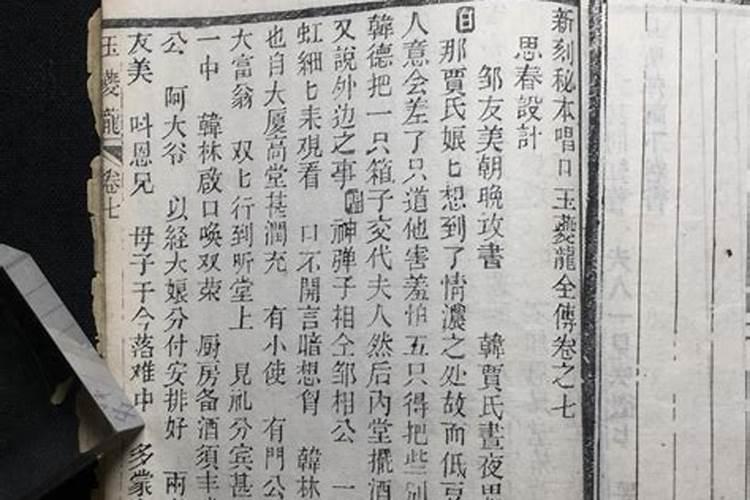 新刻秘本唱口玉夔龍全傳卷之七
思春設計
邹友美朝晚攻書 韓賈氏晝夜思
白 那賈氏娘匕想到了情濃之处故而低
人意会差了只道他害羞怕 只得把些
韓德把一只箱子交代夫人然后内堂擺酒
又說外边之事 神弹子相仝邹相公 一
虹細匕耒观看 口不開言暗想 韓林
也自大厦高堂甚濶充 有小使 有門公
大富翁 双匕行到听堂上 見礼分宾甚
一中 韓林啟口喚双荣 厨房备酒須丰
公 阿大爷 以経大娘分付安排好 兩
友美 呌恩兄 母子于今落难中 多蒙
玉夔龍 卷七